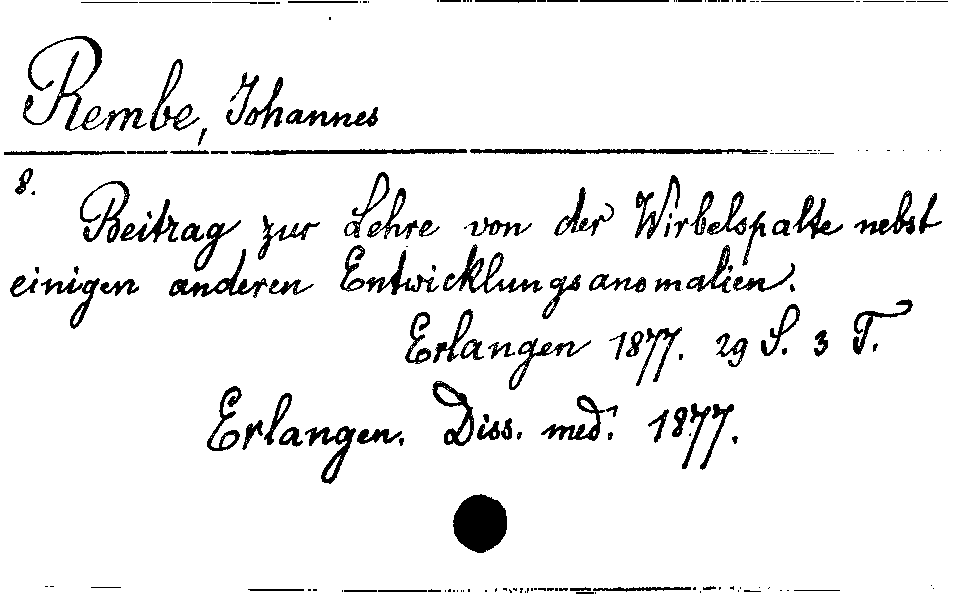 Rembe, Johannes
8.
Beitrag zur Lehre von der Wirbelspalte nebst
einigen anderen Entwicklungsanomalien.
Erlangen 1877. 29 S. 3 T.
Erlangen. Diss. med. 1877.